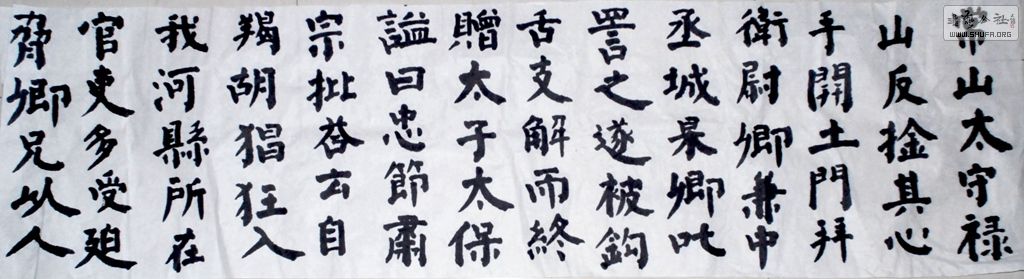 常山太守禄
山反捦其心
手開土門拜
衛尉卿兼中
丞城杲卿叱
詈之遂被鈎
舌支解而終
贈太子太保
謚曰忠節肅
宗批荅云自
羯胡猖狂入
我河縣所在
官吏多受廹
脅卿兄以人
WWW.SHUFA.ORG